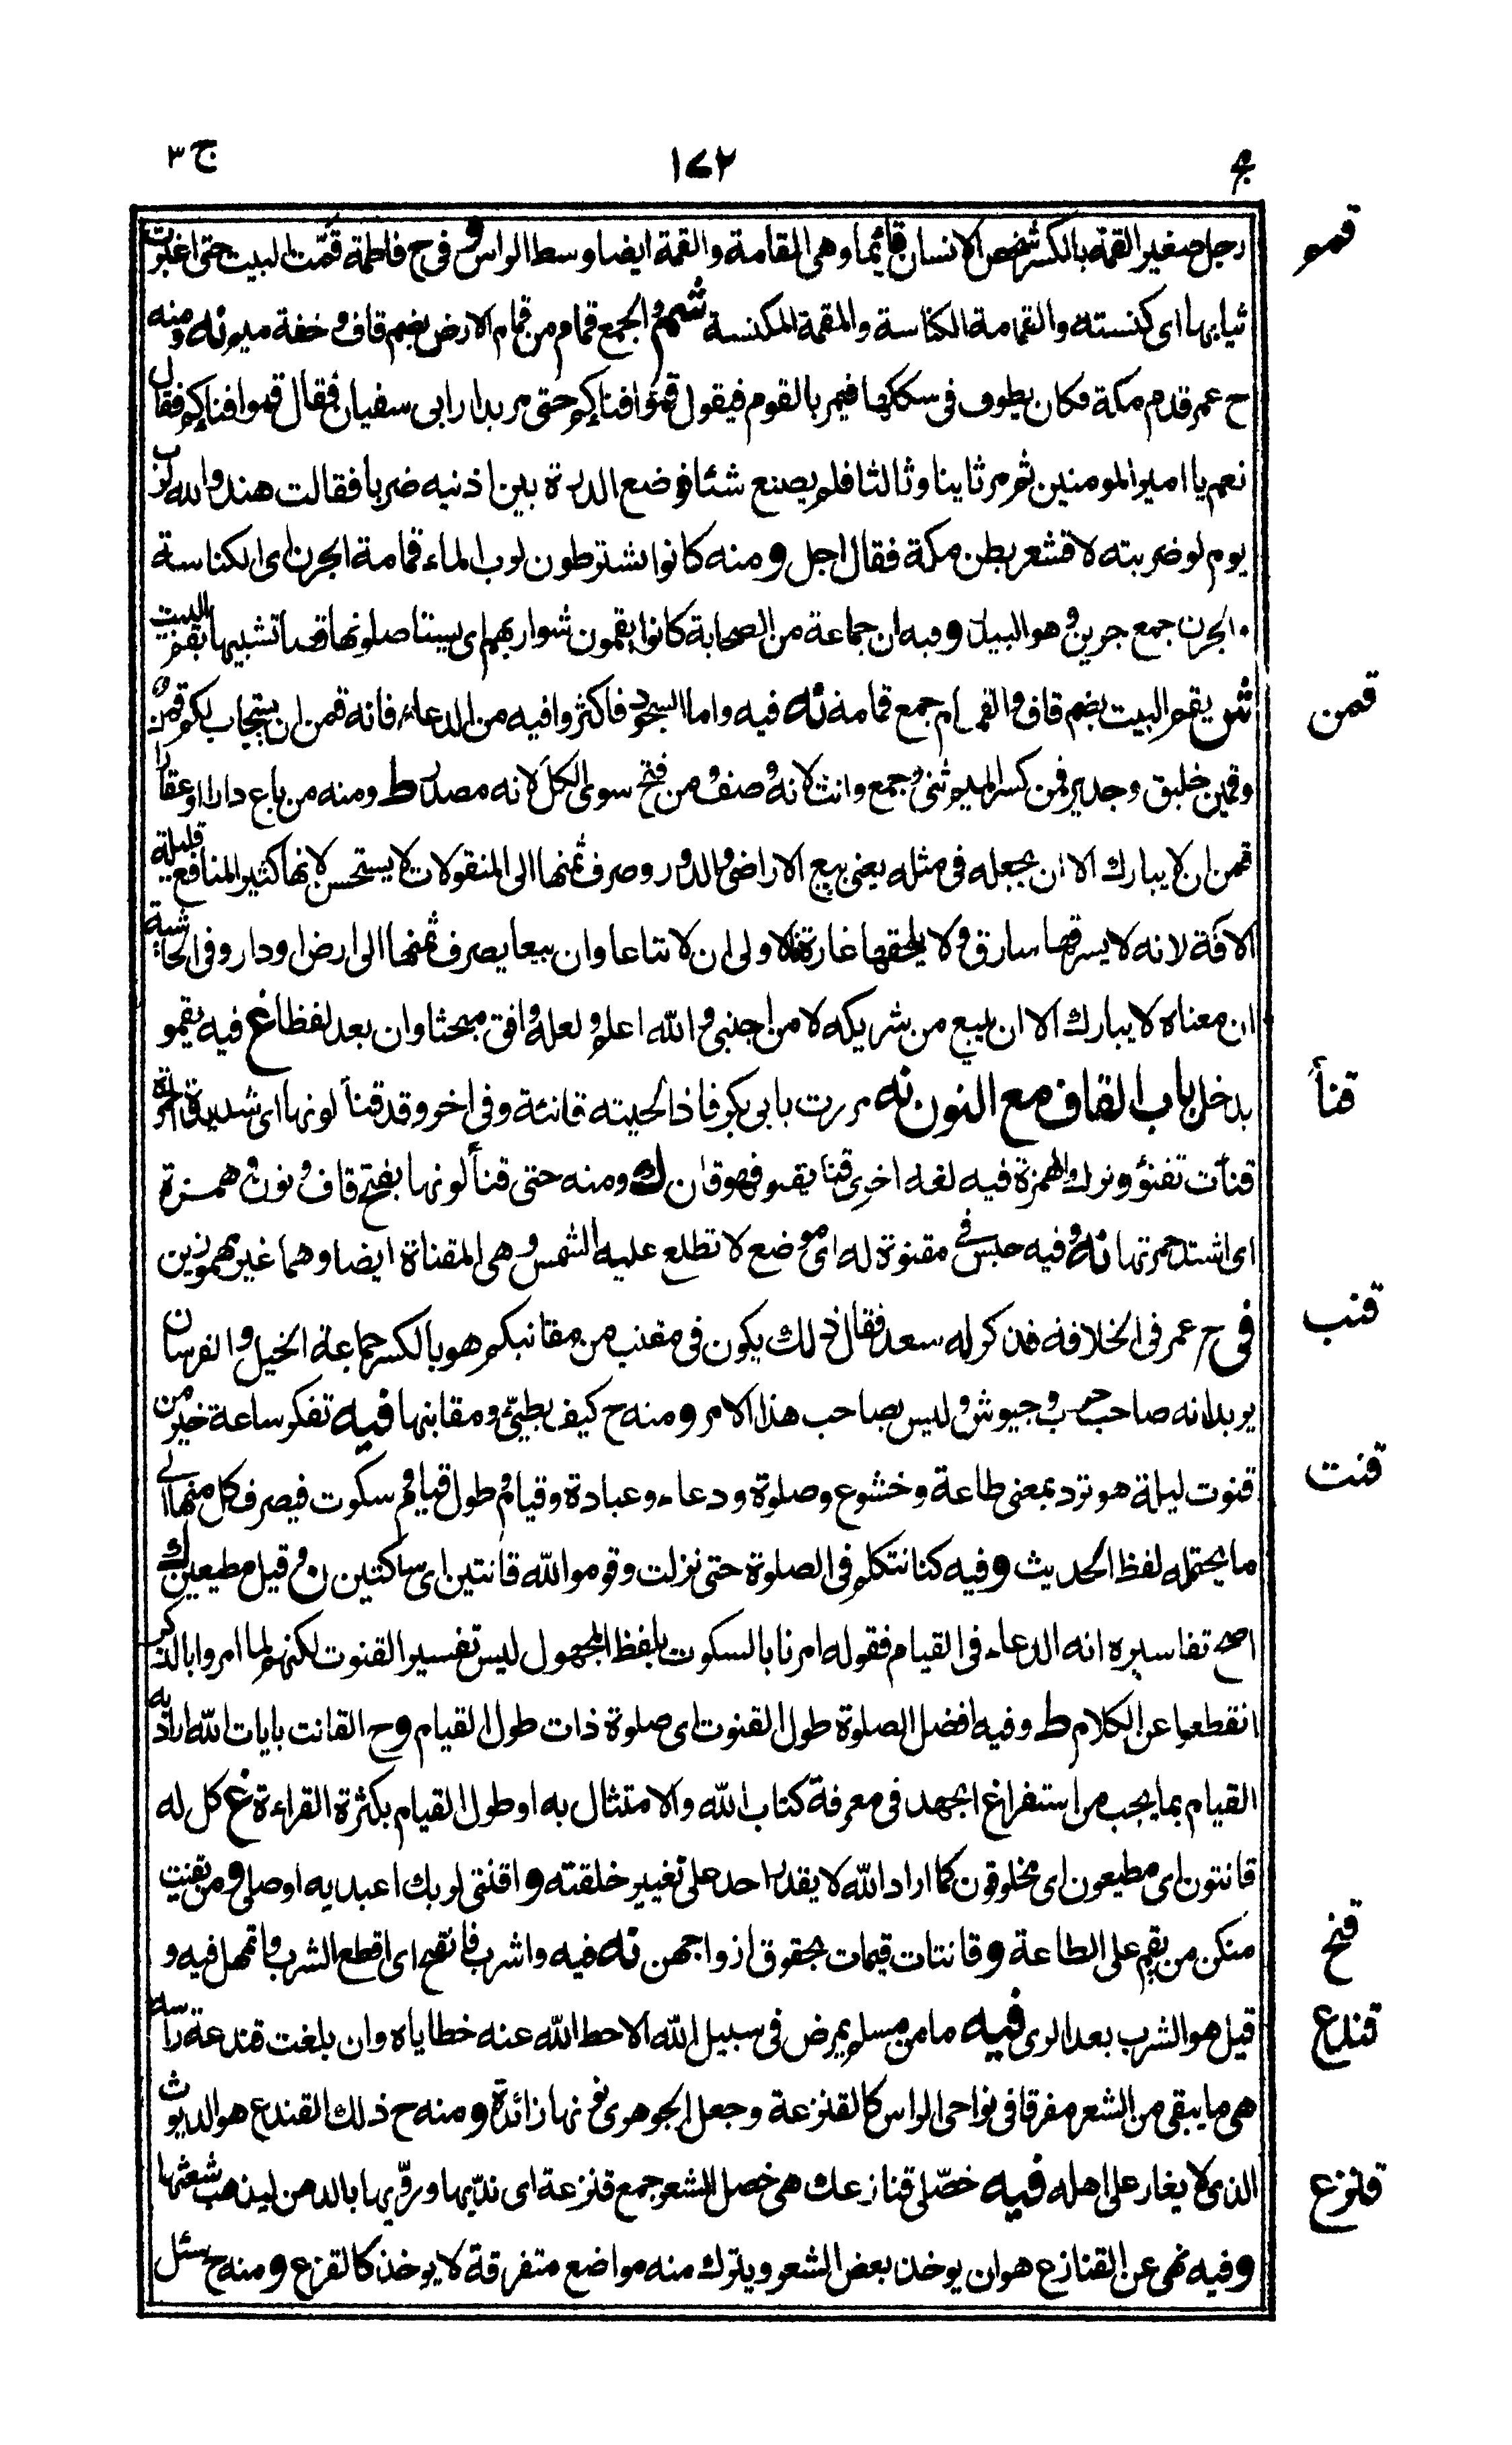 ج ٣
١٧٢
قمو
رجل صغير القمة بالكسر شخص الانسان قائما وهى القامة والقمة ايضا وسط الراس و فى ح فاطمة قمّت البيت حتى اغبرت
ثيابها اى كنسته والقمامة الكناسة والمقمة المكنسة شم و الجمع قمام من قمام الارض بضم قاف و خفة ميم نه و منه
ح عمر قدم مكة فكان يطوف فى سككها فيمر بالقوم فيقول قموا افناكم حتى مر بدار ابى سفيان فقال قموا افناكم فقال
نعم يا امير المومنين ثم مر ثانيا و ثالثا فلم يصنع شئا فوضع الدرة بين اذنيه ضربا فقالت هند والله لرب
يوم لو ضربته لاقشعر بطن مكة فقال اجل و منه كانوا يشترطون لرب الماء قمامة الجرن اى الكناسة
و الجرن جمع جرين و هو البيدر و فيه ان جماعة من الصحابة كانوا يقمون شواربهم اى يستاصلونها قصا تشبيها بقم البيت
قمن
ش يقم البيت بضم قاف و القمام جمع قمامة نه فيه و اما السجود فاكثروا فيه من الدعاء فانه قمن ان يستجاب لكم قمن
وقمين خليق و جدير فمن كسر الميم ثنى و جمع و انث لانه وصف و من فتح سوى الكل لانه مصدر ط و منه من باع دارا او عقارا
قمن ان لا يبارك الا ان يجعله فى مثله يعنى بيع الاراضى و الدور و صرف ثمنها الى المنقولات لا يستحسن لانها كثير المنافع قليلة
الافة لانه لا يسرقها سارق و لا يلحقها غارة فالاولى ان لا تباعا وان بيعا يصرف ثمنها الى ارض او دار و فى الحاشية
ان معناه لا يبارك الا ان يبيع من شريكه لا من اجنبى و الله اعلم و لعله وافق مبحثا و ان بعد لفظا غ فيه يقمو
قنأ
يدخل باب القاف مع النون نه مررت بابى بكر فاذا لحيته قانئة و فى اخر و قد قنأ لونها اى شديدة الحمرة
قنأت تقنؤ و ترك الهمزة فيه لغة اخرى قنا يقنو فهو قان ك و منه حتى قنأ لونها بفتح قاف و نون و همزة
اى اشتد حمرتها نه و فيه جلس فى مقنوة له اى موضع لا تطلع عليه الشمس و هى المقناة ايضا و هما غير مهموزين
قنب
فى ح عمر فى الخلافة فذكر له سعد فقال ذلك يكون فى مقنب من مقانبكم هو بالكسر جماعة الخيل و الفرسان
يريد انه صاحب حرب و جيوش و ليس بصاحب هذا الامر و منه ح كيف بطيئ و مقانبها فيه تفكر ساعة خير من
قنت
قنوت ليلة هو ترد بمعنى طاعة و خشوع و صلوة و دعاء و عبادة و قيام و طول قيام و سكوت فيصرف كل منها الى
ما يحتمله لفظ الحديث و فيه كنا نتكلم فى الصلوة حتى نزلت و قوموا لله قانتين اى ساكتين ن و قيل مطيعين ك
اصح تفاسيره انه الدعاء فى القيام فقوله امرنا بالسكوت بلفظ المجهول ليس تفسير القنوت لكنهم لما امروا بالذكر
انقطعوا عن الكلام ط و فيه افضل الصلوة طول القنوت اى صلوة ذات طول القيام و ح القانت بايات الله اراد به
القيام بما يجب من استفراغ الجهد فى معرفة كتاب الله و الامتثال به او طول القيام بكثرة القراءة غ كل له
قانتون اى مطيعون اى مخلوقون كما اراد الله لا يقدر احد على تغيير خلقته و اقنتى لربك اعبديه او صلى و من يقنت
قنح
منكن من يقم على الطاعة و قانتات قيمات بحقوق ازواجهن نه فيه و اشرب فاتقنح اى اقطع الشرب و اتمهل فيه و
قندع
قيل هو الشرب بعد الرى فيه ما من مسلم يمرض فى سبيل الله الا حط الله عنه خطاياه و ان بلغت قندعة راسه
هى ما يبقى من الشعر مفرقا فى نواحى الراس كالقنزعة و جعل الجوهرى نونها زائدة و منه ح ذلك القندع هو الديوث
قنزع
الذى لا يغار على اهله فيه خضّلى قنازعك هى خصل الشعر جمع قنزعة اى ندّيها و روّيها بالدهن ليذهب شعثها
و فيه نهى عن القنازع هو ان يوخذ بعض الشعر و يترك منه مواضع متفرقة لا يوخذ كالقزع و منه ح سئل